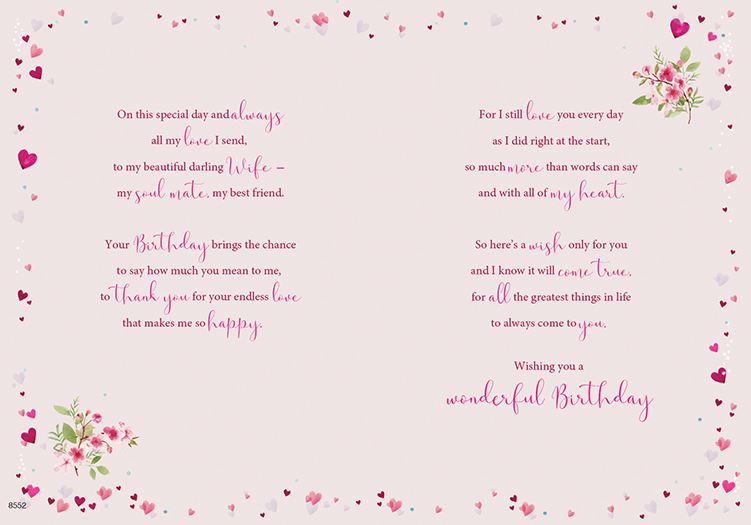 On this special day and always
all my love I send,
to my beautiful darling Wife –
my soul mate, my best friend.
Your Birthday brings the chance
to say how much you mean to me,
to thank you for your endless love
that makes me so happy.
For I still love you every day
as I did right at the start,
so much more than words can say
and with all of my heart.
So here's a wish only for you
and I know it will come true,
for all the greatest things in life
to always come to you.
Wishing you a
wonderful Birthday
8552